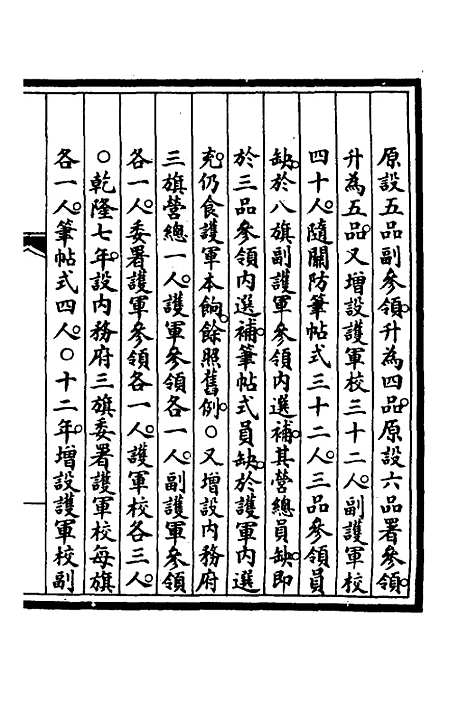 原設五品副參領升為四品。原設六品署參領。
升為五品。又增設護軍校三十二人。副護軍校
四十人。隨關防筆帖式三十二人。三品參領員
缺。於八旗副護軍參領內選補。其營總員缺。即
於三品參領內選補。筆帖式員缺。於護軍內選
充。仍食護軍本餉。餘照舊例。○又增設內務府
三旗營總一人。護軍參領各一人。副護軍參領
各一人。委署護軍參領各一人。護軍校各三人。
○乾隆七年。設內務府三旗委署護軍校每旗
各一人。筆帖式四人。○十二年。增設護軍校副